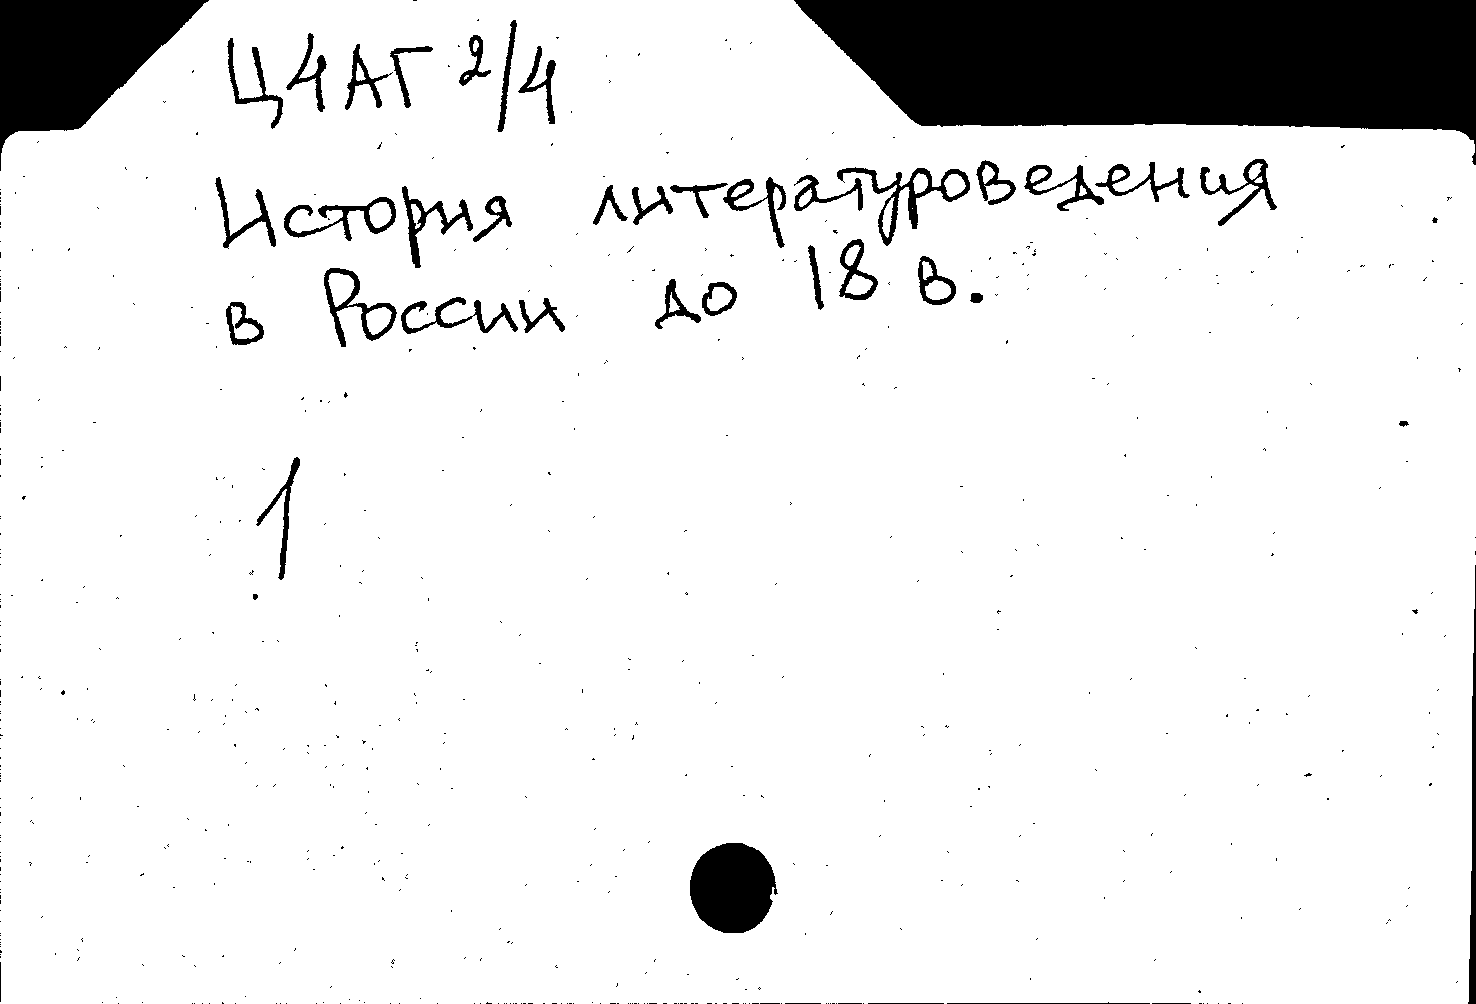 Ц4АГ 2/4
История литературоведения
в России до 18 в.
1